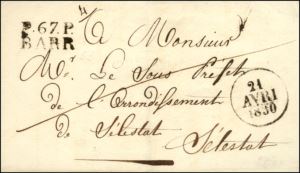 P.67.P.
BARR
A Monsieur
Mr. Le Sous Préfet
de l'Arrondissement
de Sélestat
Sélestat
21
AVRI
1830